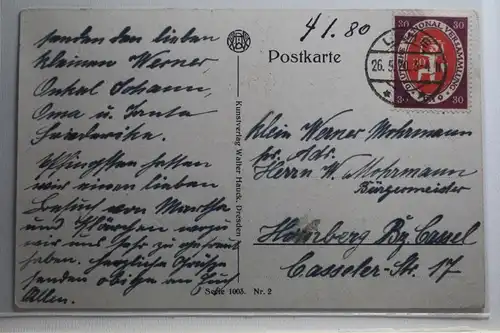 41.80
Postkarte
senden den lieben
kleinen Werner
Onkel Johann,
Oma u. Tante
Friederike.
Pfingsten hatten
wir einen lieben
Besuch von Martha
und Klärchen wozu
wir uns sehr zu gefreut
haben. Herzliche Grüße
senden obige an Euch
Allen.
Kunstverlag Walter Hauck, Dresden
Serie 1005. Nr. 2
26.5.
30 30
DEUTSCHE NATIONALVERSAMMLUNG
1919
30 30
Klein Werner Mohrmann
per Adr.
Herrn W. Mohrmann
Bürgermeister
Homberg Bz. Cassel
Casseler-Str. 17